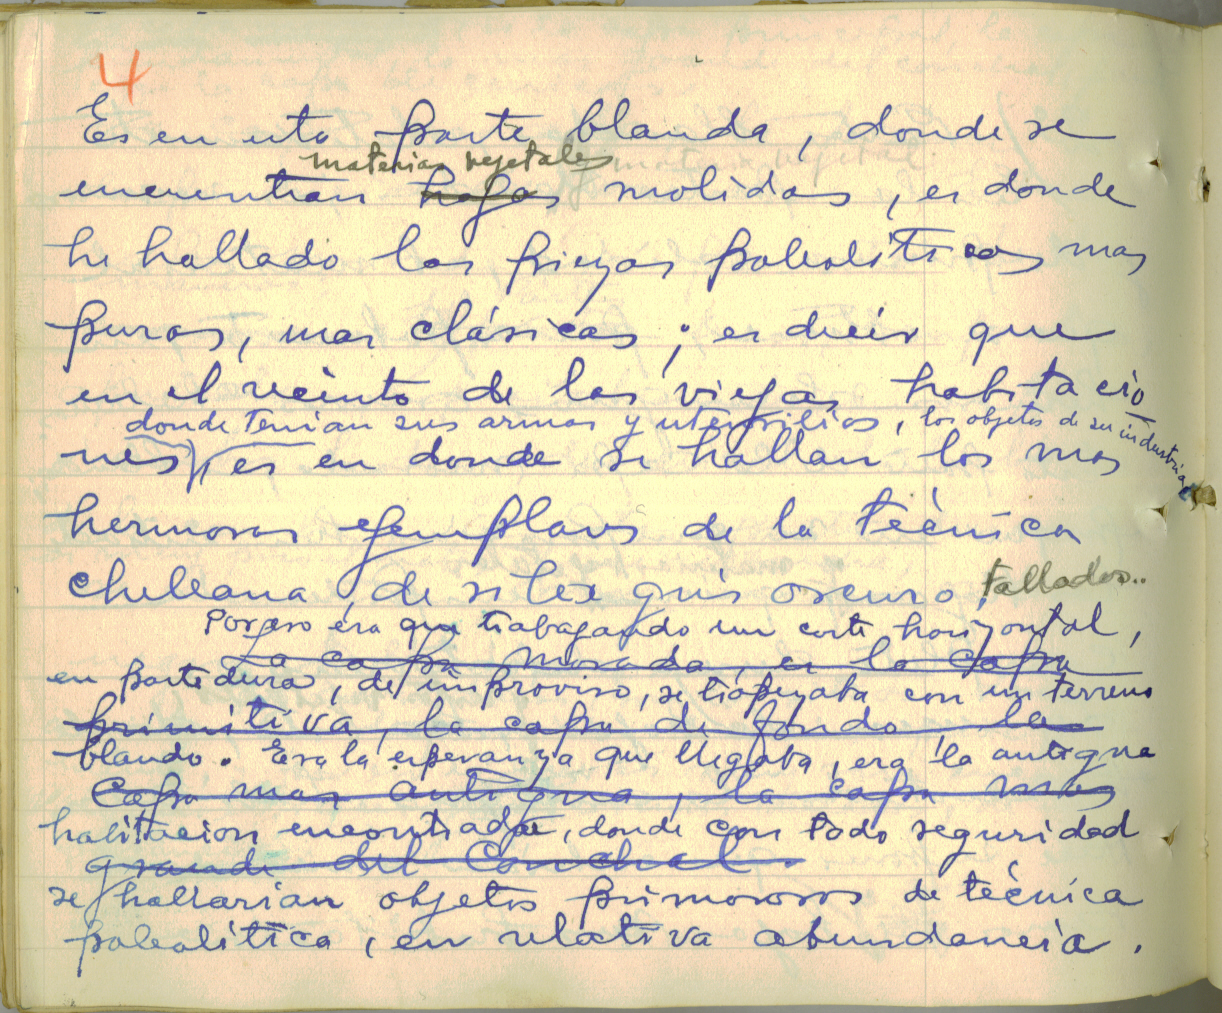 4
Es en esta parte blanda, donde se
materias vegetales
encuentran hojas molidas, es donde
he hallado las piezas paleolíticas mas
puras, mas clásicas; es decir que
en el recinto de las viejas habitacio
donde tenian sus armas y utensilios, los objetos de su industria
nes, es en donde se hallan los mas
hermosos ejemplares de la técnica
chelleana, de silex gris oscuro, tallados..
Por eso era que trabajando un corte horizontal,
La capa morada, es la capa
en parte dura, de improviso, se tropezaba con un terreno
primitiva, la capa de fondo la
blando. Era la esperanza que llegaba, era la antigua
capa mas antigua, la capa mas
habitacion encontrada, donde con todo seguridad
grande del Conchal.
se hallarian objetos primorosos de técnica
paleolítica, en relativa abundancia.